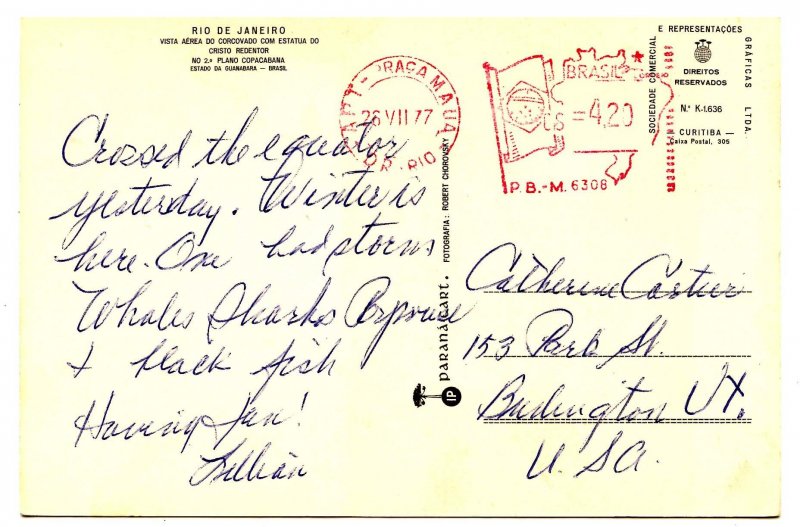 RIO DE JANEIRO
VISTA AÉREA DO CORCOVADO COM ESTATUA DO
CRISTO REDENTOR
NO 2.º PLANO COPACABANA
ESTADO DA GUANABARA — BRASIL
Crossed the equator
yesterday. Winter is
here. One bad storm
Whales Sharks Porpoise
+ black fish
Having fun!
Lillian
APT - PRAÇA MAUÁ
26 VII 77
RIO
BRASIL
= 4,20
P.B.-M. 6308
FOTOGRAFIA: ROBERT CHDROVSKY
PARANÁ CART.
IP
SOCIEDADE COMERCIAL
E REPRESENTAÇÕES
GRÁFICAS LTDA.
DIREITOS
RESERVADOS
N.º K-1.636
CURITIBA —
Caixa Postal, 305
Catherine Cartier
153 Park St.
Burlington VT.
U.S.A.